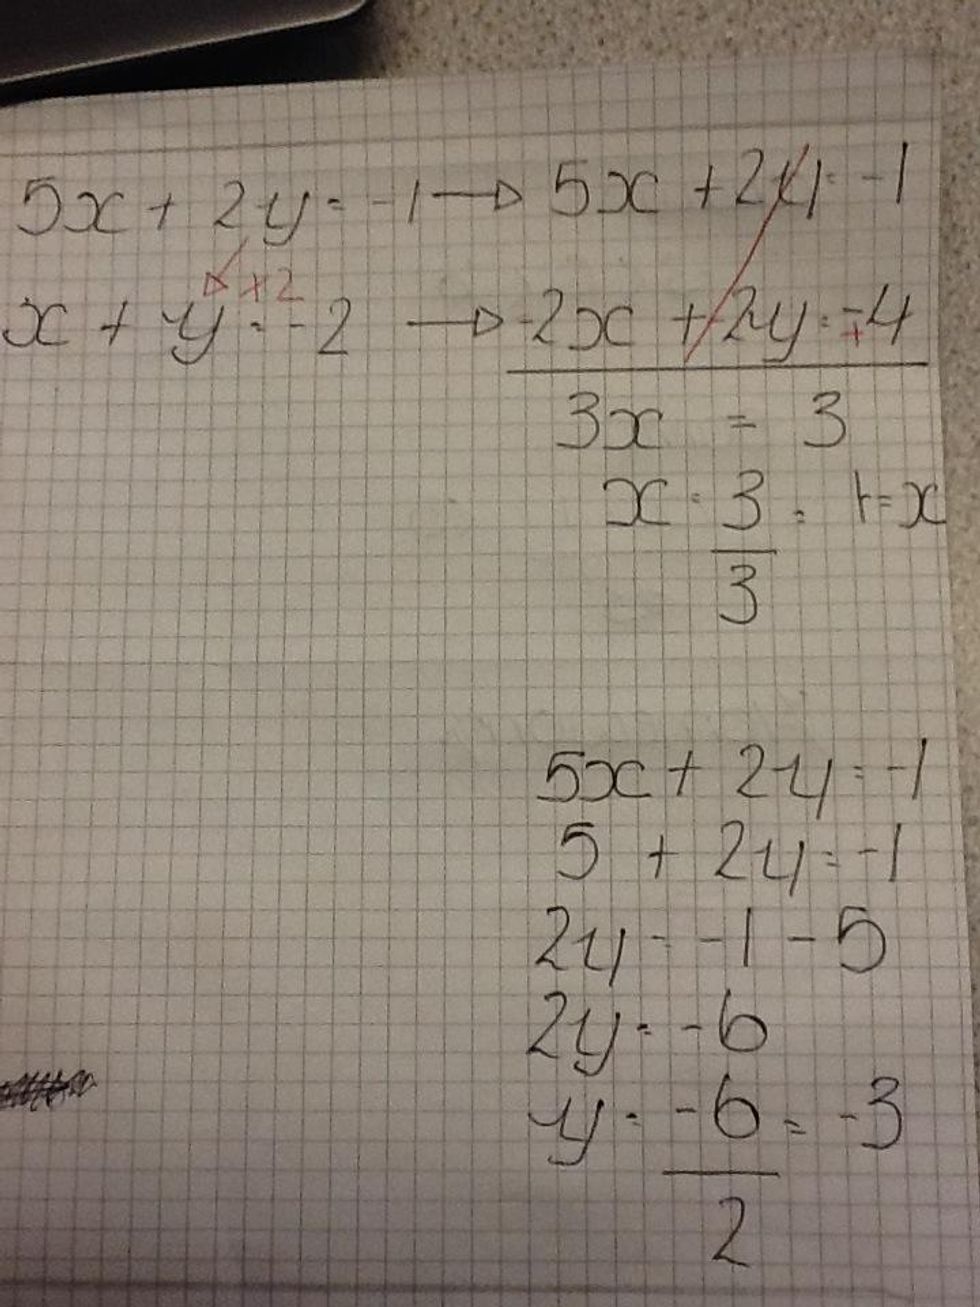 5x + 2y = -1 → 5x + 2y = -1
×2
x + y = -2 → -2x + 2y = -4
+
3x = 3
x = 3/3 = 1 = x
5x + 2y = -1
5 + 2y = -1
2y = -1 - 5
2y = -6
y = -6/2 = -3